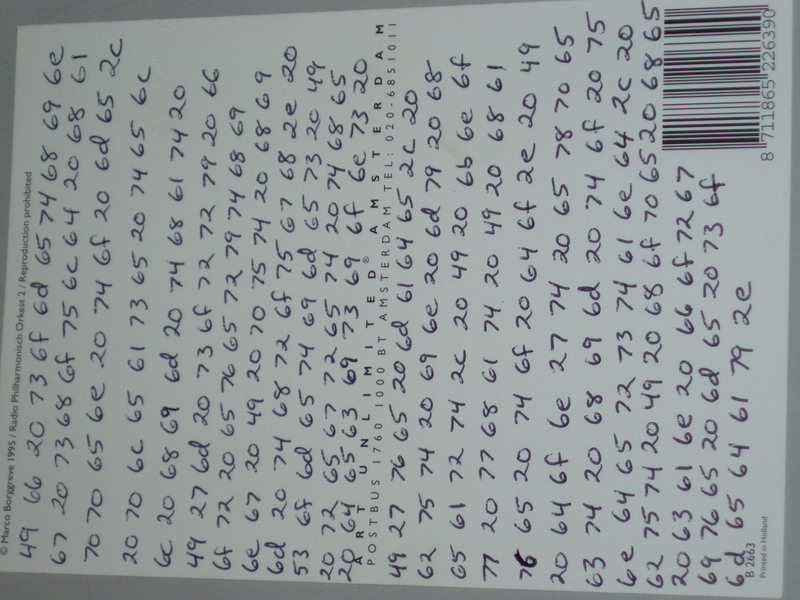 © Marco Borggreve 1995 / Radio Philharmonisch Orkest 2 / Reproduction prohibited
49 66 20 73 6f 6d 65 74 68 69 6e
67 20 73 68 6f 75 6c 64 20 68 61
70 70 65 6e 20 74 6f 20 6d 65 2c
20 70 6c 65 61 73 65 20 74 65 6c
6c 20 68 69 6d 20 74 68 61 74 20
49 27 6d 20 73 6f 72 72 79 20 66
6f 72 20 65 76 65 72 79 74 68 69
6e 67 20 49 20 70 75 74 20 68 69
6d 20 74 68 72 6f 75 67 68 2e 20
53 6f 6d 65 74 69 6d 65 73 20 49
20 72 65 67 72 65 74 20 74 68 65
20 64 65 63 69 73 69 6f 6e 73 20
ART UNLIMITED® AMSTERDAM
POSTBUS 1760 1000 BT AMSTERDAM TEL: 020-6851011
49 27 76 65 20 6d 61 64 65 2c 20
62 75 74 20 69 6e 20 6d 79 20 68
65 61 72 74 2c 20 49 20 6b 6e 6f
77 20 77 68 61 74 20 49 20 68 61
76 65 20 74 6f 20 64 6f 2e 20 49
20 64 6f 6e 27 74 20 65 78 70 65
63 74 20 68 69 6d 20 74 6f 20 75
6e 64 65 72 73 74 61 6e 64 2c 20
62 75 74 20 49 20 68 6f 70 65 20 68 65
20 63 61 6e 20 66 6f 72 67
69 76 65 20 6d 65 20 73 6f
6d 65 64 61 79 2e
B 2663
Printed in Holland
8 711865 226390